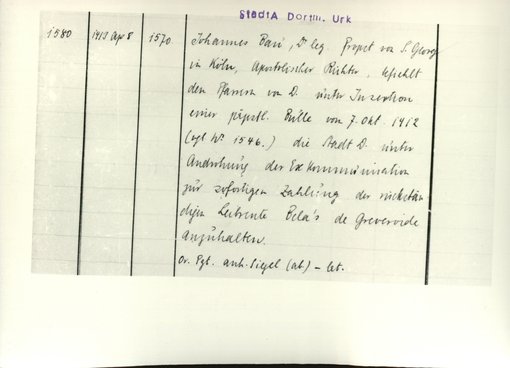 StadtA Dortm. Urk
1580 1413 Apr 8 1570 Johannes Bau, Dr leg. Propst von S. Georg
in Köln, Apostolischer Richter, befiehlt
den Pfarrern von D. unter Insertion
einer päpstl. Bulle vom 7. Okt. 1412
(vgl. Nr. 1546.) die Stadt D. unter
Androhung der Exkommunication
zur sofortigen Zahlung der rückstän
digen Leibrente Bela's de Greverode
anzuhalten.
Or. Pgt. anh. Siegel (ab) - lat.